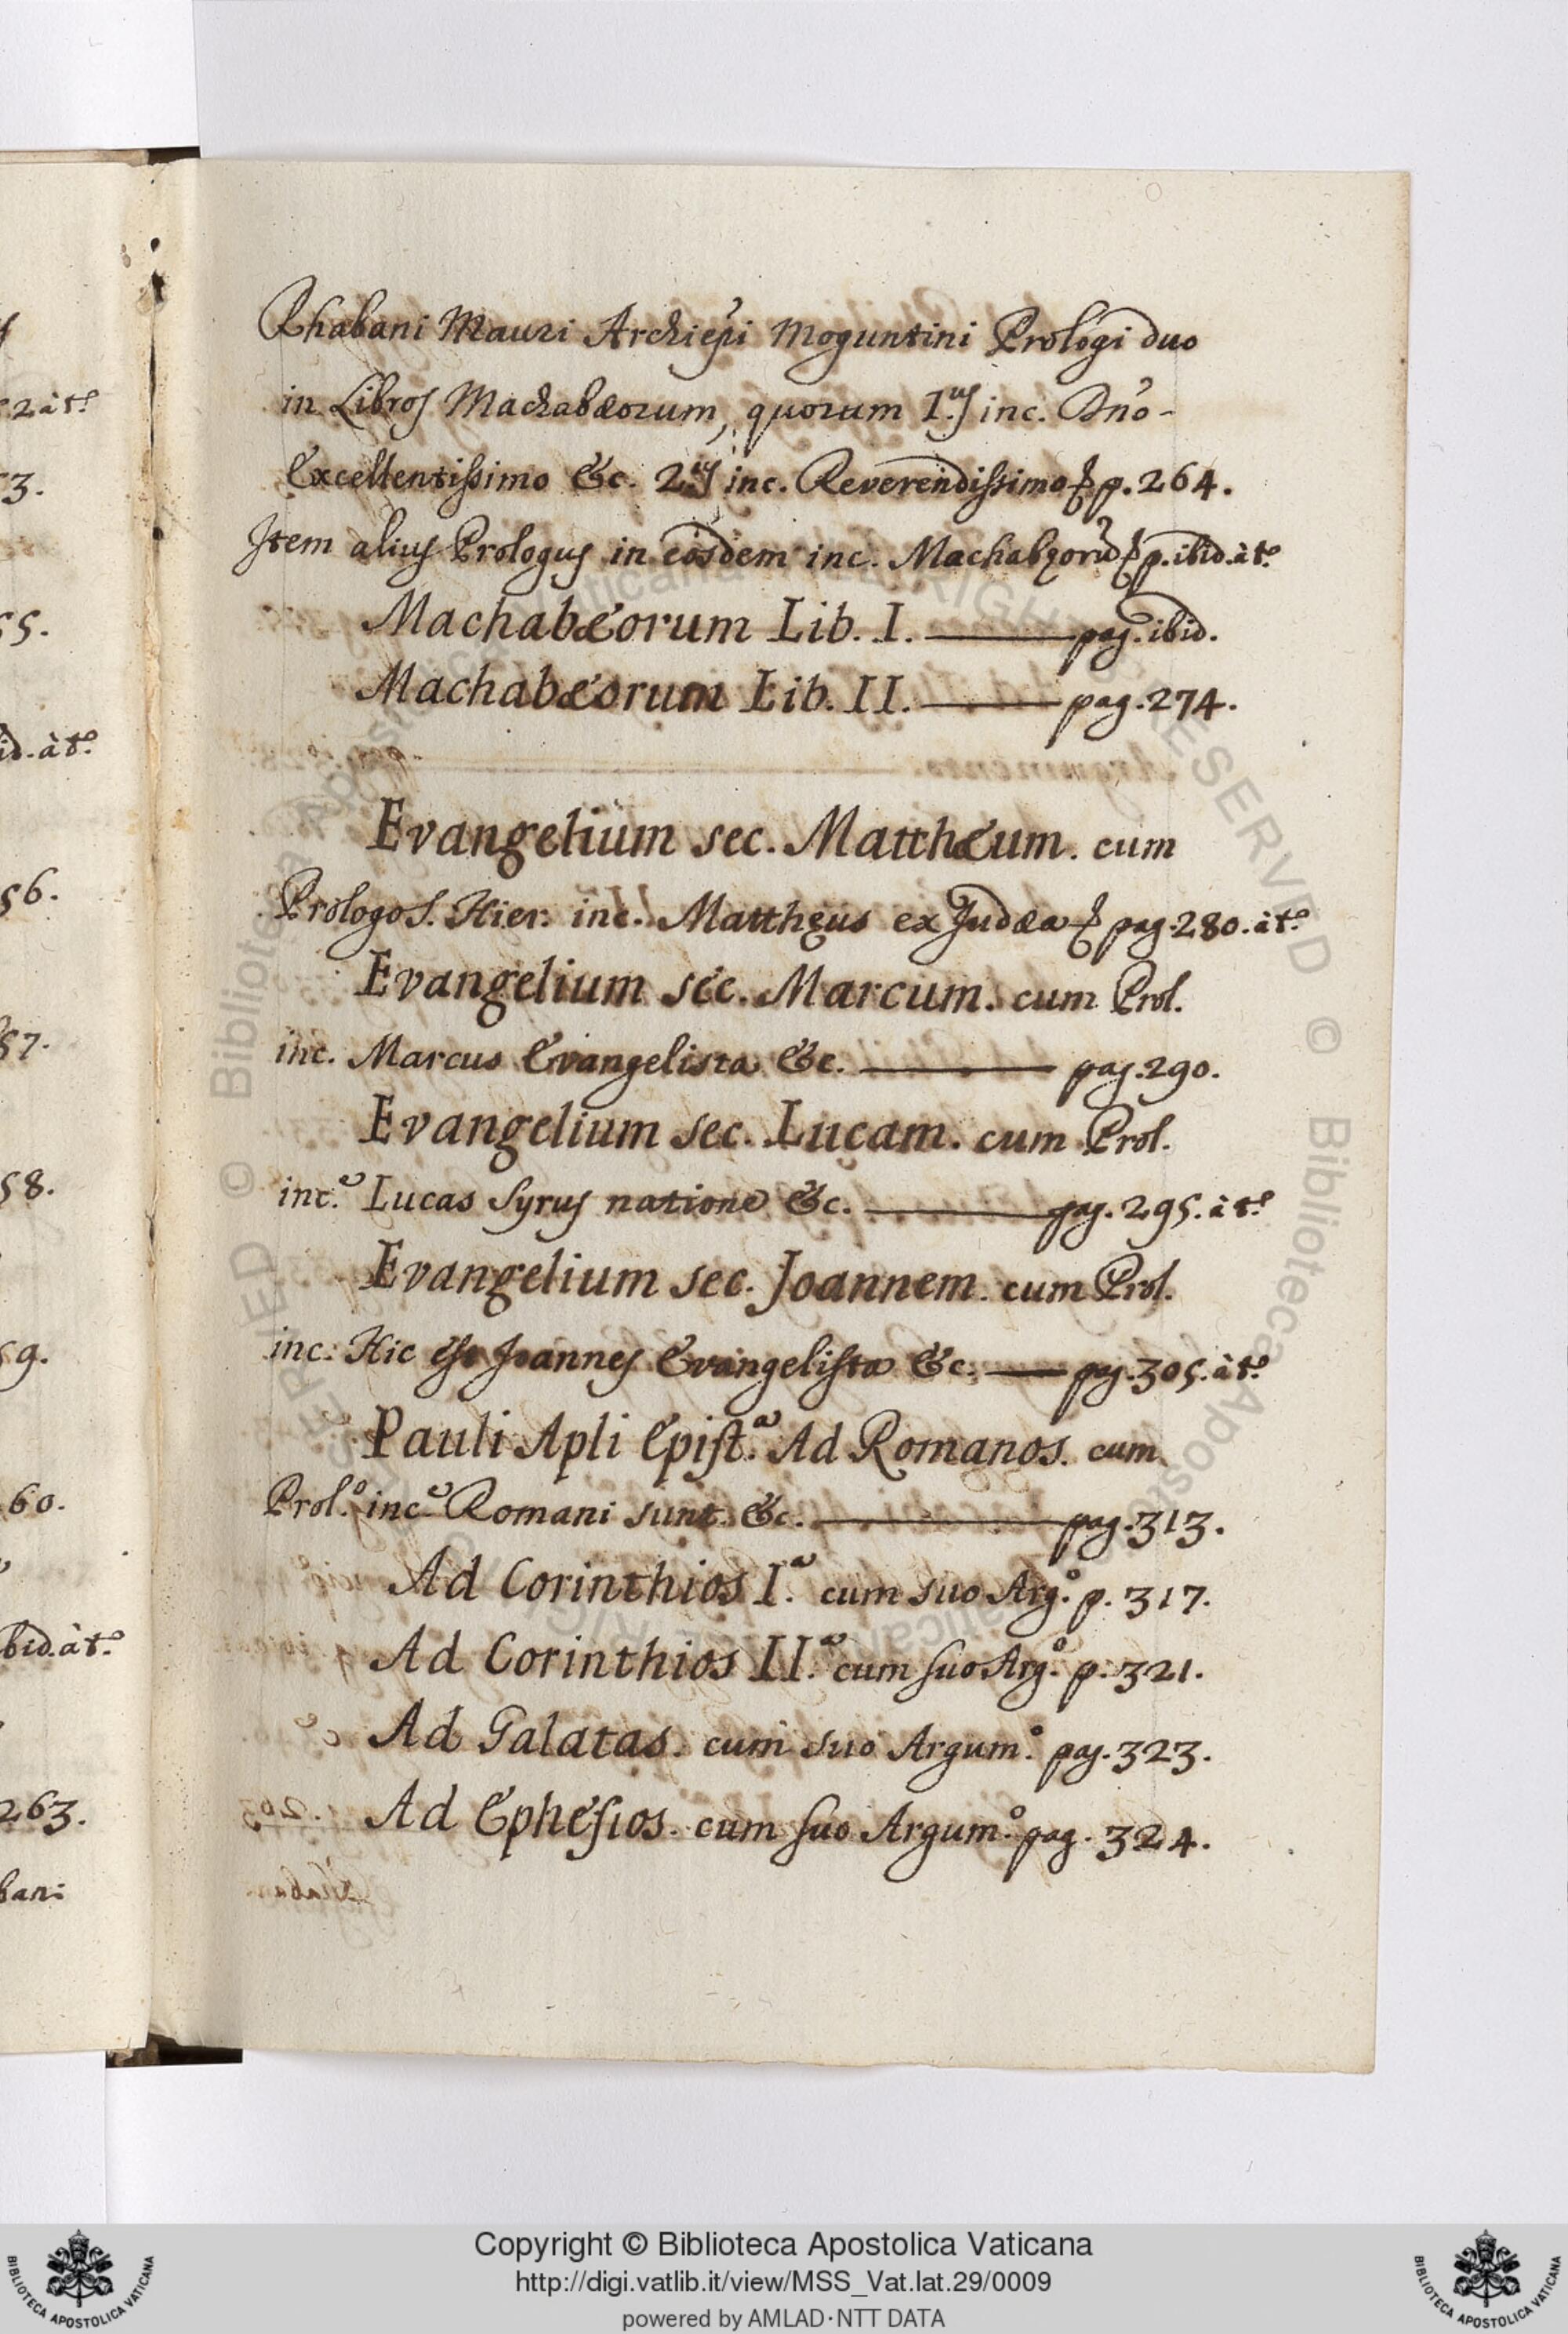 2 à t.º
3.
55.
id. à t.º
56.
57.
58.
59.
60.
bid. à t.º
263.
bani
Rhabani Mauri Archiepĩ Moguntini Prologi duo
in Libros Machabæorum, quorum 1.us inc. Dño
Excellentissimo &c. 2.us inc. Reverendissimo & p. 264.
Item alius Prologus in eosdem inc. Machabęorũ & p. ibid. à t.º
Machabæorum Lib. I. pag. ibid.
Machabæorum Lib. II. pag. 274.
Evangelium sec. Matthæum. cum
Prologo S. Hier. inc. Matthęus ex Judæa & pag. 280. à t.º
Evangelium sec. Marcum. cum Prol.
inc. Marcus Evangelista &c. pag. 290.
Evangelium sec. Lucam. cum Prol.
inc.e Lucas Syrus natione &c. pag. 295. à t.º
Evangelium sec. Joannem. cum Prol.
inc. Hic est Joannes Evangelista &c. pag. 305. à t.º
Pauli Apli Epist.a Ad Romanos. cum
Prol.º inc.e Romani sunt &c. pag. 313.
Ad Corinthios I.a cum suo Arg.º p. 317.
Ad Corinthios II.a cum suo Arg.º p. 321.
Ad Galatas. cum suo Argum.º pag. 323.
Ad Ephesios. cum suo Argum.º pag. 324.
Copyright © Biblioteca Apostolica Vaticana
http://digi.vatlib.it/view/MSS_Vat.lat.29/0009
powered by AMLAD·NTT DATA
BIBLIOTECA APOSTOLICA VATICANA
BIBLIOTECA APOSTOLICA VATICANA